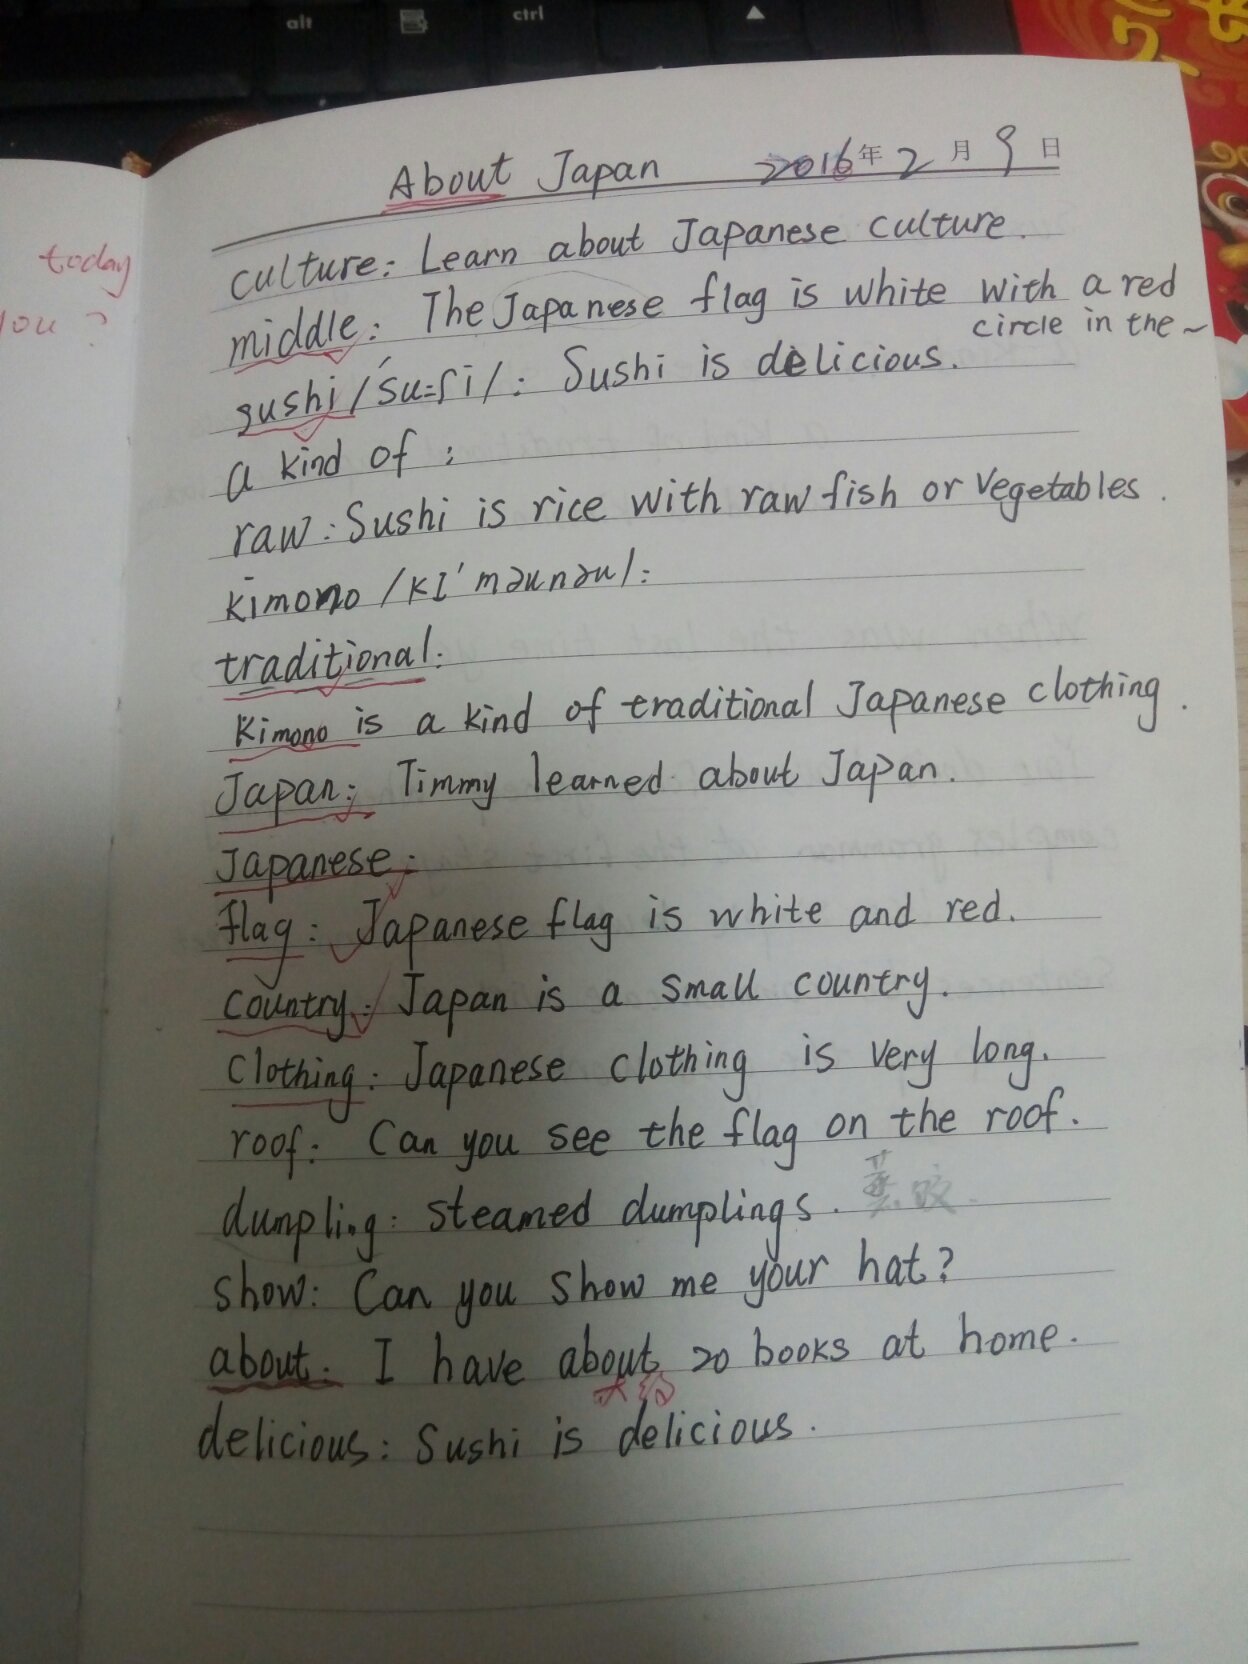 alt
ctrl
About Japan 2016年2月9日
today
you?
culture: Learn about Japanese culture.
middle: The Japanese flag is white with a red
circle in the ~
sushi /'su:ʃi/: Sushi is delicious.
a kind of :
raw: Sushi is rice with raw fish or vegetables.
kimono /kɪ'məunəu/:
traditional:
Kimono is a kind of traditional Japanese clothing.
Japan: Timmy learned about Japan.
Japanese:
flag: Japanese flag is white and red.
country: Japan is a small country.
Clothing: Japanese clothing is very long.
roof: Can you see the flag on the roof.
dumpling: steamed dumplings. 蒸饺
show: Can you show me your hat?
about: I have about 20 books at home.
大约
delicious: Sushi is delicious.